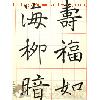 壽福如
海柳暗